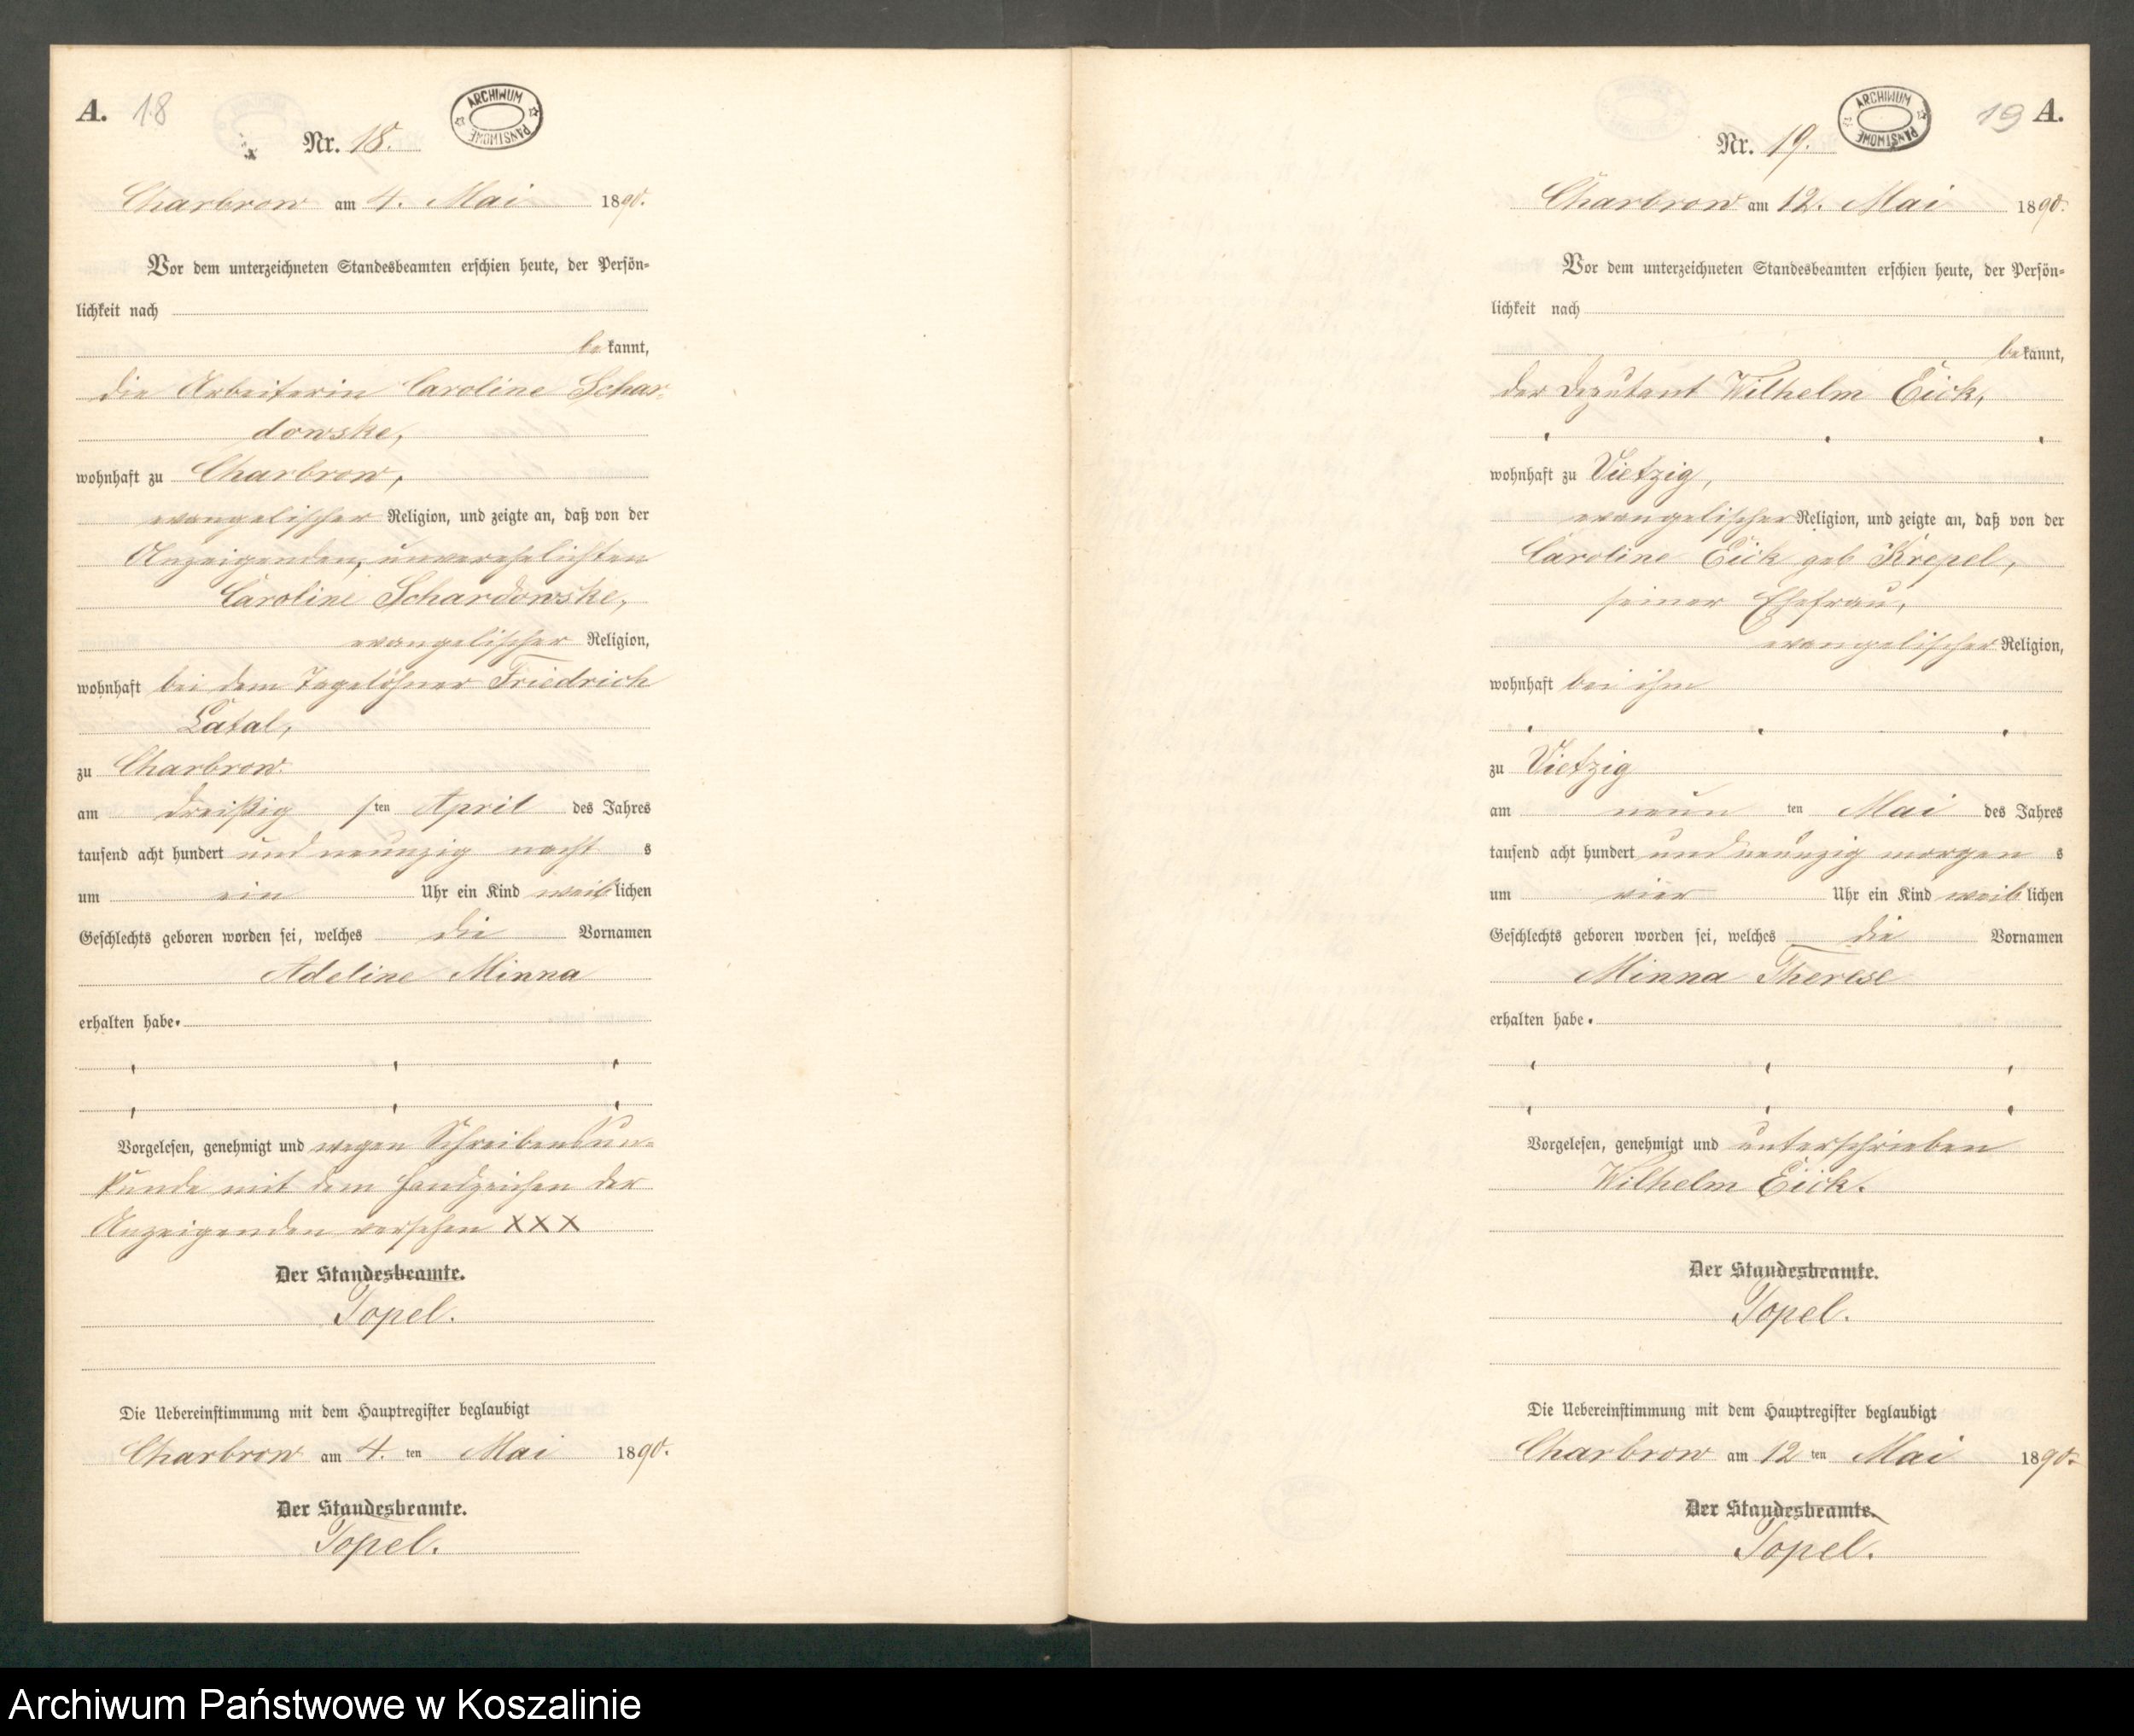 A. 18
ARCHIWUM PAŃSTWOWE
Nr. 18.
Charbrow am 4. Mai 1890.
Vor dem unterzeichneten Standesbeamten erschien heute, der Persön-
lichkeit nach
bekannt,
die Arbeiterin Caroline Schar-
dowske,
wohnhaft zu Charbrow,
evangelischer Religion, und zeigte an, daß von der
Anzeigenden, unverehelichten
Caroline Schardowske,
evangelischer Religion,
wohnhaft bei dem Tagelöhner Friedrich
Latal,
zu Charbrow
am dreißig sten April des Jahres
tausend acht hundert und neunzig nacht s
um ein Uhr ein Kind weiblichen
Geschlechts geboren worden sei, welches die Vornamen
Adeline Minna
erhalten habe.
Vorgelesen, genehmigt und wegen Schreibensun-
kunde mit dem Handzeichen der
Anzeigenden versehen XXX
Der Standesbeamte.
Topel.
Die Uebereinstimmung mit dem Hauptregister beglaubigt
Charbrow am 4. ten Mai 1890.
Der Standesbeamte.
Topel.
19 A.
ARCHIWUM PAŃSTWOWE
Nr. 19.
Charbrow am 12. Mai 1890.
Vor dem unterzeichneten Standesbeamten erschien heute, der Persön-
lichkeit nach
bekannt,
der Deputant Wilhelm Eick,
wohnhaft zu Vietzig,
evangelischer Religion, und zeigte an, daß von der
Caroline Eick geb Krepel,
seiner Ehefrau,
evangelischer Religion,
wohnhaft bei ihm
zu Vietzig
am neun ten Mai des Jahres
tausend acht hundert und neunzig morgen s
um vier Uhr ein Kind weiblichen
Geschlechts geboren worden sei, welches die Vornamen
Minna Therese
erhalten habe.
Vorgelesen, genehmigt und unterschrieben
Wilhelm Eick.
Der Standesbeamte.
Topel.
Die Uebereinstimmung mit dem Hauptregister beglaubigt
Charbrow am 12 ten Mai 1890.
Der Standesbeamte.
Topel.
Archiwum Państwowe w Koszalinie